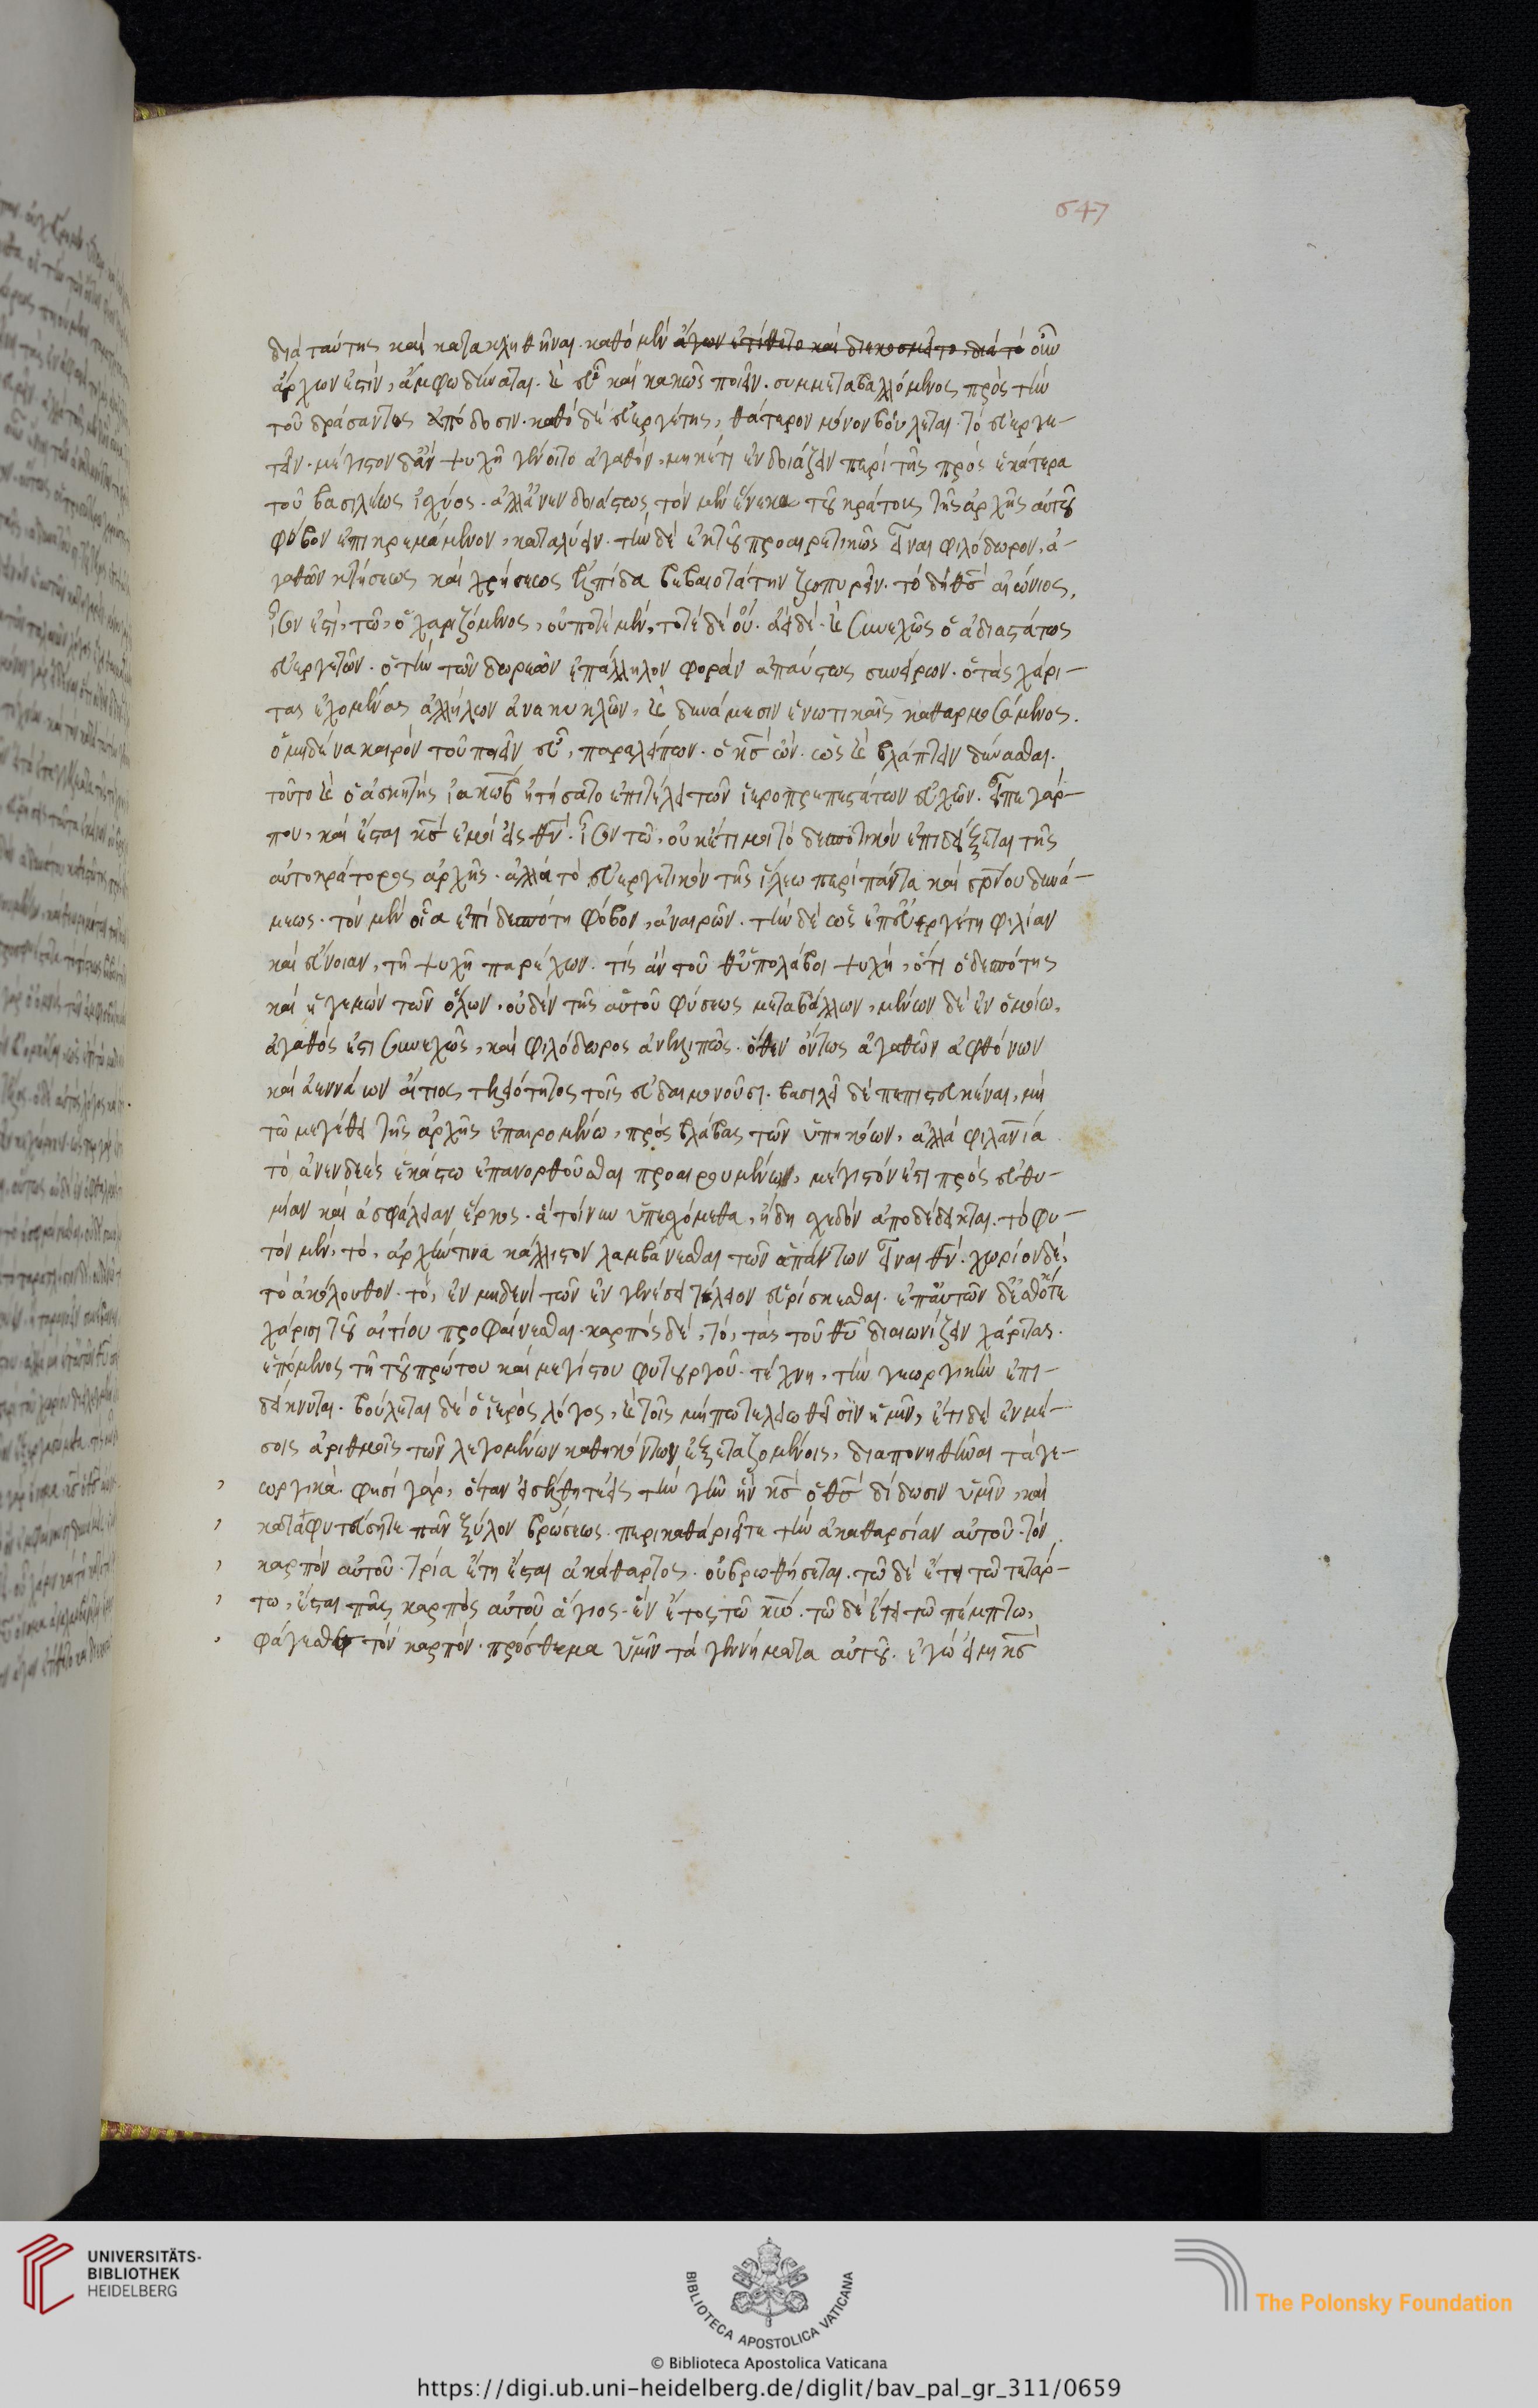 διὰ ταύτης καὶ κατακληθῆναι. καθὸ μὲν ἄγων ἐτίθετο καὶ διεκοσμεῖτο. διὰ τὸ οὖν
ἄρχων ἐστίν, ἄμφω δύναται. καὶ εὖ καὶ κακῶς ποιεῖν. συμμεταβαλλόμενος πρὸς τὴν
τοῦ δράσαντος ἀπόδοσιν. καθὸ δὲ εὐεργέτης, θάτερον μόνον βούλεται. τὸ εὐεργε-
τεῖν. μέγιστον δ᾽ ἂν ψυχῇ γένοιτο ἀγαθὸν, μηκέτι ἐνδοιάζειν περὶ τῆς πρὸς ἑκάτερα
τοῦ βασιλέως ἰσχύος. ἀλλ᾽ ἀνενδοιάστως τὸν μὲν ἕνεκα τοῦ κράτους τῆς ἀρχῆς αὐτοῦ
φόβον ἐπικρεμάμενον, καταλύειν. τὴν δὲ ἐκ τοῦ προαιρετικῶς εἶναι φιλόδωρον, ἀ-
γαθῶν κτήσεως καὶ χρήσεως ἐλπίδα βεβαιοτάτην ζωπυρεῖν. τὸ δὴ θ̅ς̅ αἰώνιος,
ἴσον ἐστὶ, τῶ, ὁ χαριζόμενος, οὐ ποτὲ μὲν, ποτὲ δὲ οὔ. ἀεὶ δὲ καὶ συνεχῶς ὁ ἀδιαστάτως
εὐεργετῶν. ὁ τὴν τῶν δωρεῶν ἐπάλληλον φορὰν ἀπαύστως συνείρων. ὁ τὰς χάρι-
τας ἐχομένας ἀλλήλων ἀνακυκλῶν, καὶ δυνάμεσιν ἑνωτικαῖς καθαρμοσάμενος.
ὁ μηδένα καιρὸν τοῦ ποιεῖν εὖ, παραλείπων. ὁ κ̅ς̅ ὢν. ὡς καὶ βλάπτειν δύνασθαι.
τοῦτο καὶ ὁ ἀσκητὴς ἰακὼβ ἠτήσατο ἐπιτέλει τῶν ἱεροπρεπεστάτων εὐχῶν. εἶπε γάρ
που, καὶ ἔσται κ̅ς̅ ἐμοὶ εἰς θ̅ν̅. ἴσον τῶ, οὐκέτι μοι τὸ δεσποτικὸν ἐπιδείξεται τῆς
αὐτοκράτορος ἀρχῆς. ἀλλὰ τὸ εὐεργετικὸν τῆς ἵλεω περὶ πάντα καὶ σ̅ρ̅ν̅ου δυνά-
μεως. τὸν μὲν οἷα ἐπὶ δεσπότη φόβον, ἀναιρῶν. τὴν δὲ ὡς ἐπ᾽ εὐεργέτη φιλίαν
καὶ εὔνοιαν, τῆ ψυχῆ παρέχων. τίς ἂν τοῦθ᾽ ὑπολάβοι ψυχὴ, ὅτι ὁ δεσπότης
καὶ ἡγεμὼν τῶν ὅλων, οὐδὲν τῆς αὑτοῦ φύσεως μεταβάλλων, μένων δὲ ἐν ὁμοίω,
ἀγαθός ἐστι συνεχῶς, καὶ φιλόδωρος ἀνελλιπῶς. ὅθεν ὄντως ἀγαθῶν ἀφθόνων
καὶ ἀεννάων αἴτιος τελειότητος τοῖς εὐδαιμονοῦσι. βασιλεῖ δὲ πεπιστευκέναι, μὴ
τῶ μεγέθει τῆς ἀρχῆς ἐπαιρομένω, πρὸς βλάβας τῶν ὑπηκόων, ἀλλὰ φιλαν̅ία
τὸ ἀνενδεὲς ἑκάστω ἐπανορθοῦσθαι προαιρουμένων, μέγιστόν ἐστι πρὸς εὐθυ-
μίαν καὶ ἀσφάλειαν ἕρκος. ἃ τοίνυν ὑπεσχόμεθα, ἤδη σχεδὸν ἀποδέδεικται. τὸ φυ-
τὸν μὲν, τὸ, ἀρχὴν τινα κάλλιστον λαμβάνεσθαι τῶν ἁπάντων εἶναι θ̅ν̅. χωρίον δὲ,
τὸ ἀκόλουθον. τὸ, ἐν μηδενὶ τῶν ἐν γενέσει τέλειον εὑρίσκεσθαι. ἐπ᾽ αὐτῶν δὲ ἔσθ᾽ ὅτε
χάριτι τοῦ αἰτίου προφαίνεσθαι. καρπὸς δὲ, τὸ, τὰς τοῦ θ̅υ̅ διαιωνίζειν χάριτας.
ἑπόμενος τῆ τοῦ πρώτου καὶ μεγίστου φυτουργοῦ τέχνη, τὴν γεωργικὴν ἐπι-
δείκνυται. βούλεται δὲ ὁ ἱερὸς λόγος, καὶ τοῖς μήπω τελειωθεῖσιν ἡμῖν, ἔτι δὲ ἐν μέ-
σοις ἀριθμοῖς τῶν λεγομένων καθηκόντων ἐξεταζομένοις, διαπονηθῆναι τὰ γε-
ωργικά. φησὶ γὰρ, ὅταν εἰσέλθητε εἰς τὴν γῆν ἣν κ̅ς̅ ὁ θ̅ς̅ δίδωσιν ὑμῖν, καὶ
καταφυτεύσητε πᾶν ξύλον βρώσεως. περικαθαριεῖτε τὴν ἀκαθαρσίαν αὐτοῦ. τὸν
καρπὸν αὐτοῦ. τρία ἔτη ἔσται ἀκάθαρτος. οὐ βρωθήσεται. τῶ δὲ ἔτει τῶ τετάρ-
τω, ἔσται πᾶς καρπὸς αὐτοῦ ἅγιος. ἐν ἔτος τῶ κ̅ω̅. τῶ δὲ ἔτει τῶ πέμπτω,
φάγεσθε τὸν καρπόν. πρόσθεμα ὑμῖν τὰ γεννήματα αὐτοῦ. ἐγώ εἰμι κ̅ς̅
647
UNIVERSITÄTS-
BIBLIOTHEK
HEIDELBERG
BIBLIOTECA APOSTOLICA VATICANA
The Polonsky Foundation
© Biblioteca Apostolica Vaticana
https://digi.ub.uni-heidelberg.de/diglit/bav_pal_gr_311/0659